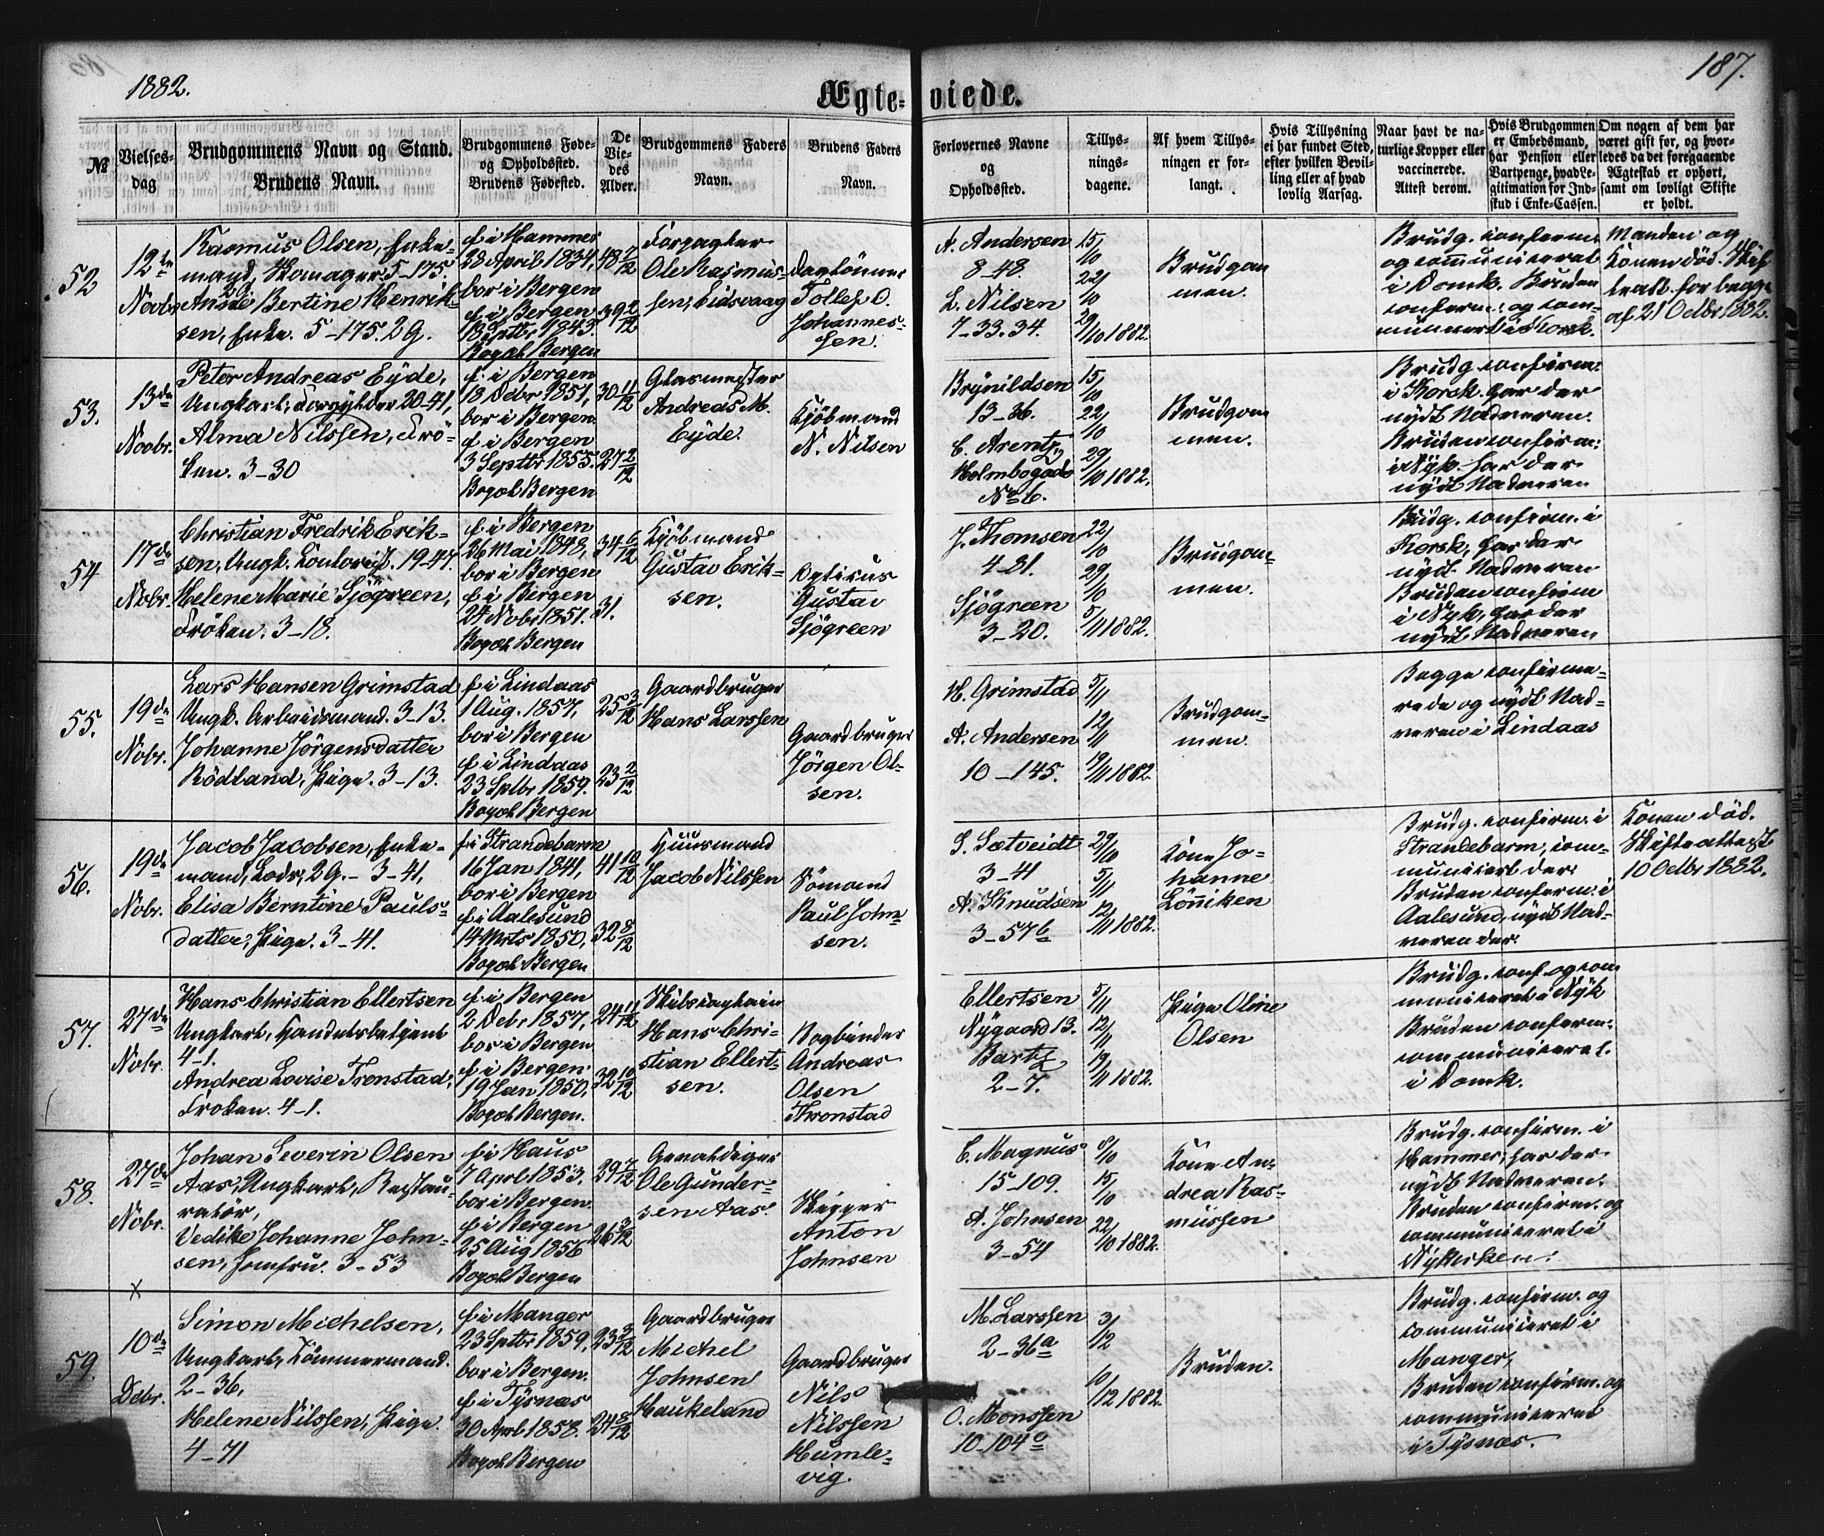 1882.
187.
Ægte-viede.
№
Vielses-dag
Brudgommens Navn og Stand.
Brudens Navn.
Brudgommens Føde- og Opholdssted.
Brudens Fødested.
De Viedes Alder.
Brudgommens Faders Navn.
Brudens Faders Navn.
Forlovernes Navne og Opholdssted.
Tillysningsdagene.
Af hvem Tillysningen er forlangt.
Hvis Tillysning ei har fundet Sted, efter hvilken Bevilling eller af hvad lovlig Aarsag.
Naar havt de naturlige Kopper eller vaccinerede. Attest derom.
Hvis Brudgommen er Embedsmand, har Pension eller Vartpenge, hvad Legitimation for Indskud i Enke-Cassen.
Om nogen af dem har været gift før, og hvorledes da det foregaaende Ægteskab er ophørt, samt om lovligt Skifte er holdt.
52
12te
Novbr.
Rasmus Olsen, Enke-
mand, 5-175.
Bertine Henrik-
sen, Enke. 5-175. 29.
f. i Hammer
28 April 1834,
bor i Bergen
f. i Bergen
18 Septb. 1843.
Bopæl Bergen
48 7/12
39 2/12
Forpagter
Ole Rasmus-
sen, Eidsvaag
Tollef O.
Johannes-
sen.
A. Andersen
8-48.
L. Nilsen
7-33.34.
15/10
22/10
29/10 1882.
Brudgom
men.
Brudg. confirm.
og communiceret
i Domk. Bruden
confirm. og com-
municert i Korsk.
Manden og
Konen død. Skif
teatt. for begge
af 21 Octbr 1882.
53.
13de
Novbr.
Peter Andreas Eyde,
Ungkarl, Forgylder 20-41,
Alma Nilssen, Frö-
ken. 3-30
f. i Bergen
18 Debr 1851,
bor i Bergen
f. i Bergen
3 Septbr 1855.
Bopæl Bergen
30 11/12
27 2/12
Glasmester
Andreas M.
Eyde.
Kjöbmand
N. Nilsen
Brynildsen
13-86.
C. Arentz
Holmbogade
No 6.
15/10
22/10
29/10 1882.
Brudgom
men.
Brudg confirm.
i Korsk. har der
nydt Nadveren.
Bruden confirm.
i Nyk. har der
nydt Nadveren
54
17de
Nobr.
Christian Fredrik Erik-
sen, Ungk. Contorist. 19-47.
Helene Marie Sjögreen,
Fröken. 3-18.
f. i Bergen
26 Mai 1848,
bor i Bergen
f. i Bergen
24 Nobr 1851.
Bopæl Bergen
34 6/12
31.
Kjöbmand
Gustav Erik-
sen.
Opticus
Gustav
Sjögreen
J. Thomsen
4-81.
Sjögreen
3-20.
22/10
29/10
5/11 1882.
Brudgom-
men.
Brudg. confirm. i
Korsk, har der
nydt Nadveren
Bruden confirm
i Nyk, har der
nydt Nadveren
55.
19de
Nobr.
Lars Hansen Grimstad
Ungk. Arbeidsmand. 3-13.
Johanne Jörgensdatter
Rödland, Pige. 3-13.
f. i Lindaas
1 Aug. 1857,
bor i Bergen
f. i Lindaas
23 Sptbr 1859.
Bopæl Bergen
25 3/12
23 2/12
Gaardbruger
Hans Larssen
Gaardbruger
Jörgen Ol-
sen.
H. Grimstad
A. Andersen
10-145.
5/11
12/11
19/11 1882.
Brudgom-
men.
Begge confirme-
rede og nydt Nad-
veren i Lindaas
56.
19de
Nobr.
Jacob Jacobsen, Enke-
mand, Lods, 29.- 3-41,
Elisa Berntine Pauls-
datter, Pige. 3-41.
f. i Strandebarm
16 Jan 1841,
bor i Bergen
f. i Aalesund
14 Mrts 1850,
Bopæl Bergen
41 10/12
32 8/12
Huusmand
Jacob Nilssen
Sömand
Paul John-
sen.
S. Sætveidt
3-41
A. Knudsen
3-57b
29/10
5/11
12/11 1882.
Kone Jo-
hanne
Lönniken
Brudg. confirm. i
Strandebarm, com-
municert der
Bruden confirm. i
Aalesund, nydt Nad-
veren der.
Konen död.
Skifteattest
10 Octbr 1882.
57.
27de
Nobr.
Hans Christian Ellertsen
Ungkarl, Handelsbetjent
4-1.
Andrea Lovise Tronstad,
Froken. 4-1.
f. i Bergen
2 Debr 1857,
bor i Bergen
f. i Bergen
19 Jan 1850,
Bopæl Bergen.
24 11/12
32 10/12
Skibscaptain
Hans Chri-
stian Ellert-
sen.
Bogbinder
Andreas
Olsen
Thronstad
Ellertsen
Nygaard 13.
Bartz
2-7.
5/11
12/11
19/11 1882.
Pige Oline
Olsen
Brudg. conf. og com
municeret i Nyk
Bruden confirm.
communiceret.
i Domk.
58.
27de
Nobr.
Johan Severin Olsen
Aas, Ungkarl, Restau-
ratör,
Vedike Johanne John-
sen, Jomfru. 3-53
f. i Haus
7 Aprl 1853,
bor i Bergen.
f. i Bergen
25 Aug 1856
Bopæl Bergen
29 7/12
26 3/12
Ole Gunder-
sen Aas.
Skipper
Anton
Johnsen
C. Magnus
15-109.
A. Johnsen
3-54
8/10
15/10
22/10 1882.
Kone An-
drea Ras-
mussen
Brudg. confirm. i
Hammer, har der
nydt Nadveren.
Bruden confirm. og
communiceret i
Nykirken.
x
59.
10de
Debr.
Simon Michelsen,
Ungkarl, Tömmermand.
2-36,
Helene Nilssen, Pige.
4-71
f. i Manger
23 Sptbr 1859,
bor i Bergen.
f. i Tysnæs
30 Aprl 1858.
Bopæl Bergen
23 3/12
24 8/12
Gaardbruger
Michel
Johnsen
Haukeland
Gaardbruger
Nils
Nilssen
Humle-
vig.
M. Larssen
2-36a
O. Monssen
10-104c
3/12
10/12 1882.
Bruden.
Brudg. confirm. og
communiceret i
Manger,
Bruden confirm. og
communiceret
i Tysnæs.